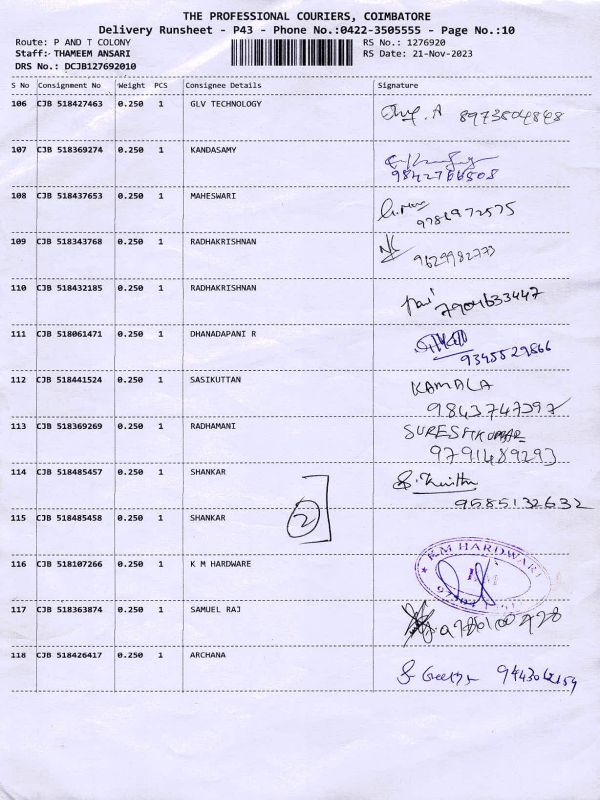 THE PROFESSIONAL COURIERS, COIMBATORE
Delivery Runsheet - P43 - Phone No.:0422-3505555 - Page No.:10
Route: P AND T COLONY RS No.: 1276920
Staff: THAMEEM ANSARI RS Date: 21-Nov-2023
DRS No.: DCJB127692010
S No Consignment No Weight PCS Consignee Details Signature
106 CJB 518427463 0.250 1 GLV TECHNOLOGY
107 CJB 518369274 0.250 1 KANDASAMY
108 CJB 518437653 0.250 1 MAHESWARI
109 CJB 518343768 0.250 1 RADHAKRISHNAN
110 CJB 518432185 0.250 1 RADHAKRISHNAN
7904633447
111 CJB 518061471 0.250 1 DHANADAPANI R
9345529866
112 CJB 518441524 0.250 1 SASIKUTTAN KAMALA
9843747397
113 CJB 518369269 0.250 1 RADHAMANI SURESHKUMAR
9791489293
114 CJB 518485457 0.250 1 SHANKAR
9585132632
115 CJB 518485458 0.250 1 SHANKAR 2
116 CJB 518107266 0.250 1 K M HARDWARE K.M HARDWARE
117 CJB 518363874 0.250 1 SAMUEL RAJ
118 CJB 518426417 0.250 1 ARCHANA